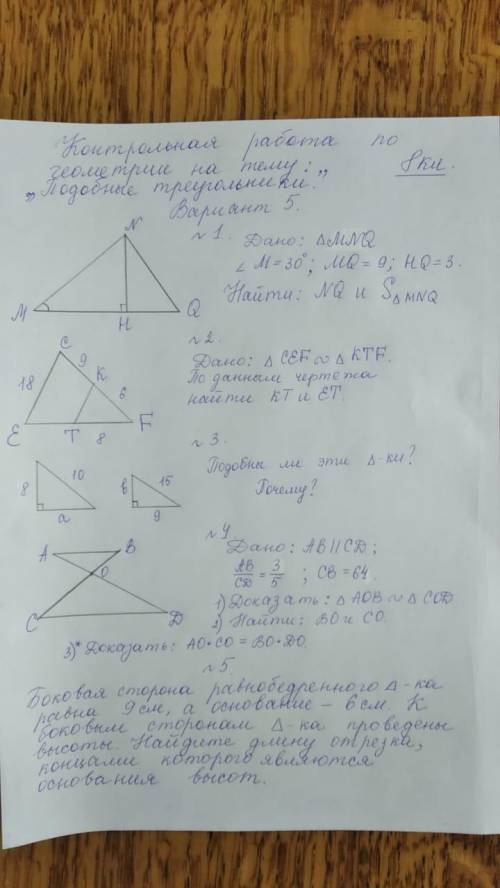 Контрольная работа по
геометрии на тему: „ 8 кл.
„Подобные треугольники.
Вариант 5.
N
M
H
Q
№1. Дано: ΔMNQ
∠M=30°; MQ=9; HQ=3.
Найти: NQ и SΔMNQ
C
9
K
18
6
E
T
8
F
№2.
Дано: ΔCEF ∾ ΔKTF.
По данным чертежа
найти KT и ET.
8
10
a
в
15
9
№3.
Подобны ли эти Δ-ки?
Почему?
A
B
O
C
D
№4
Дано: AB||CD;
AB/CD = 3/5 ; CB=64.
1) Доказать: ΔAOB ∾ ΔCOD
2) Найти: BO и CO.
3)* Доказать: AO•CO = BO•DO.
№5.
Боковая сторона равнобедренного Δ-ка
равна 9 см, а основание – 6 см. К
боковым сторонам Δ-ка проведены
высоты. Найдите длину отрезка,
концами которого являются
основания высот.